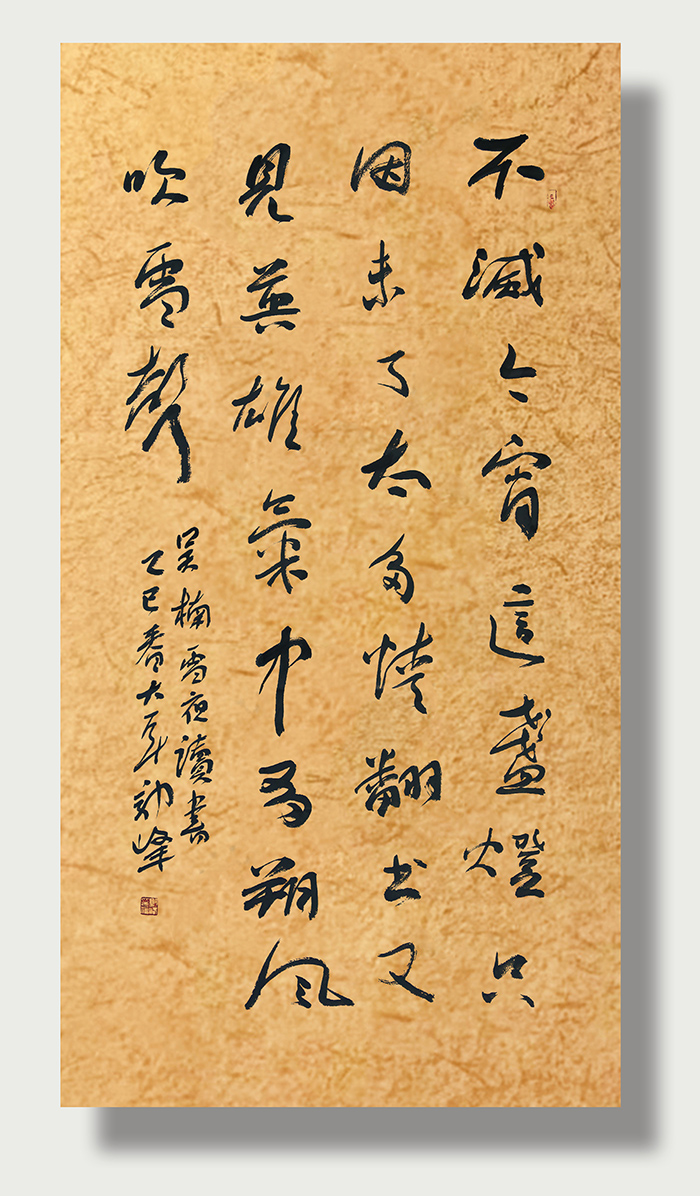 不滅今宵這盞燈只
因未了太多情翻书又
見英雄氣中有朔風
吹雪聲
吴楠雪夜讀書
乙巳春大年勁峰